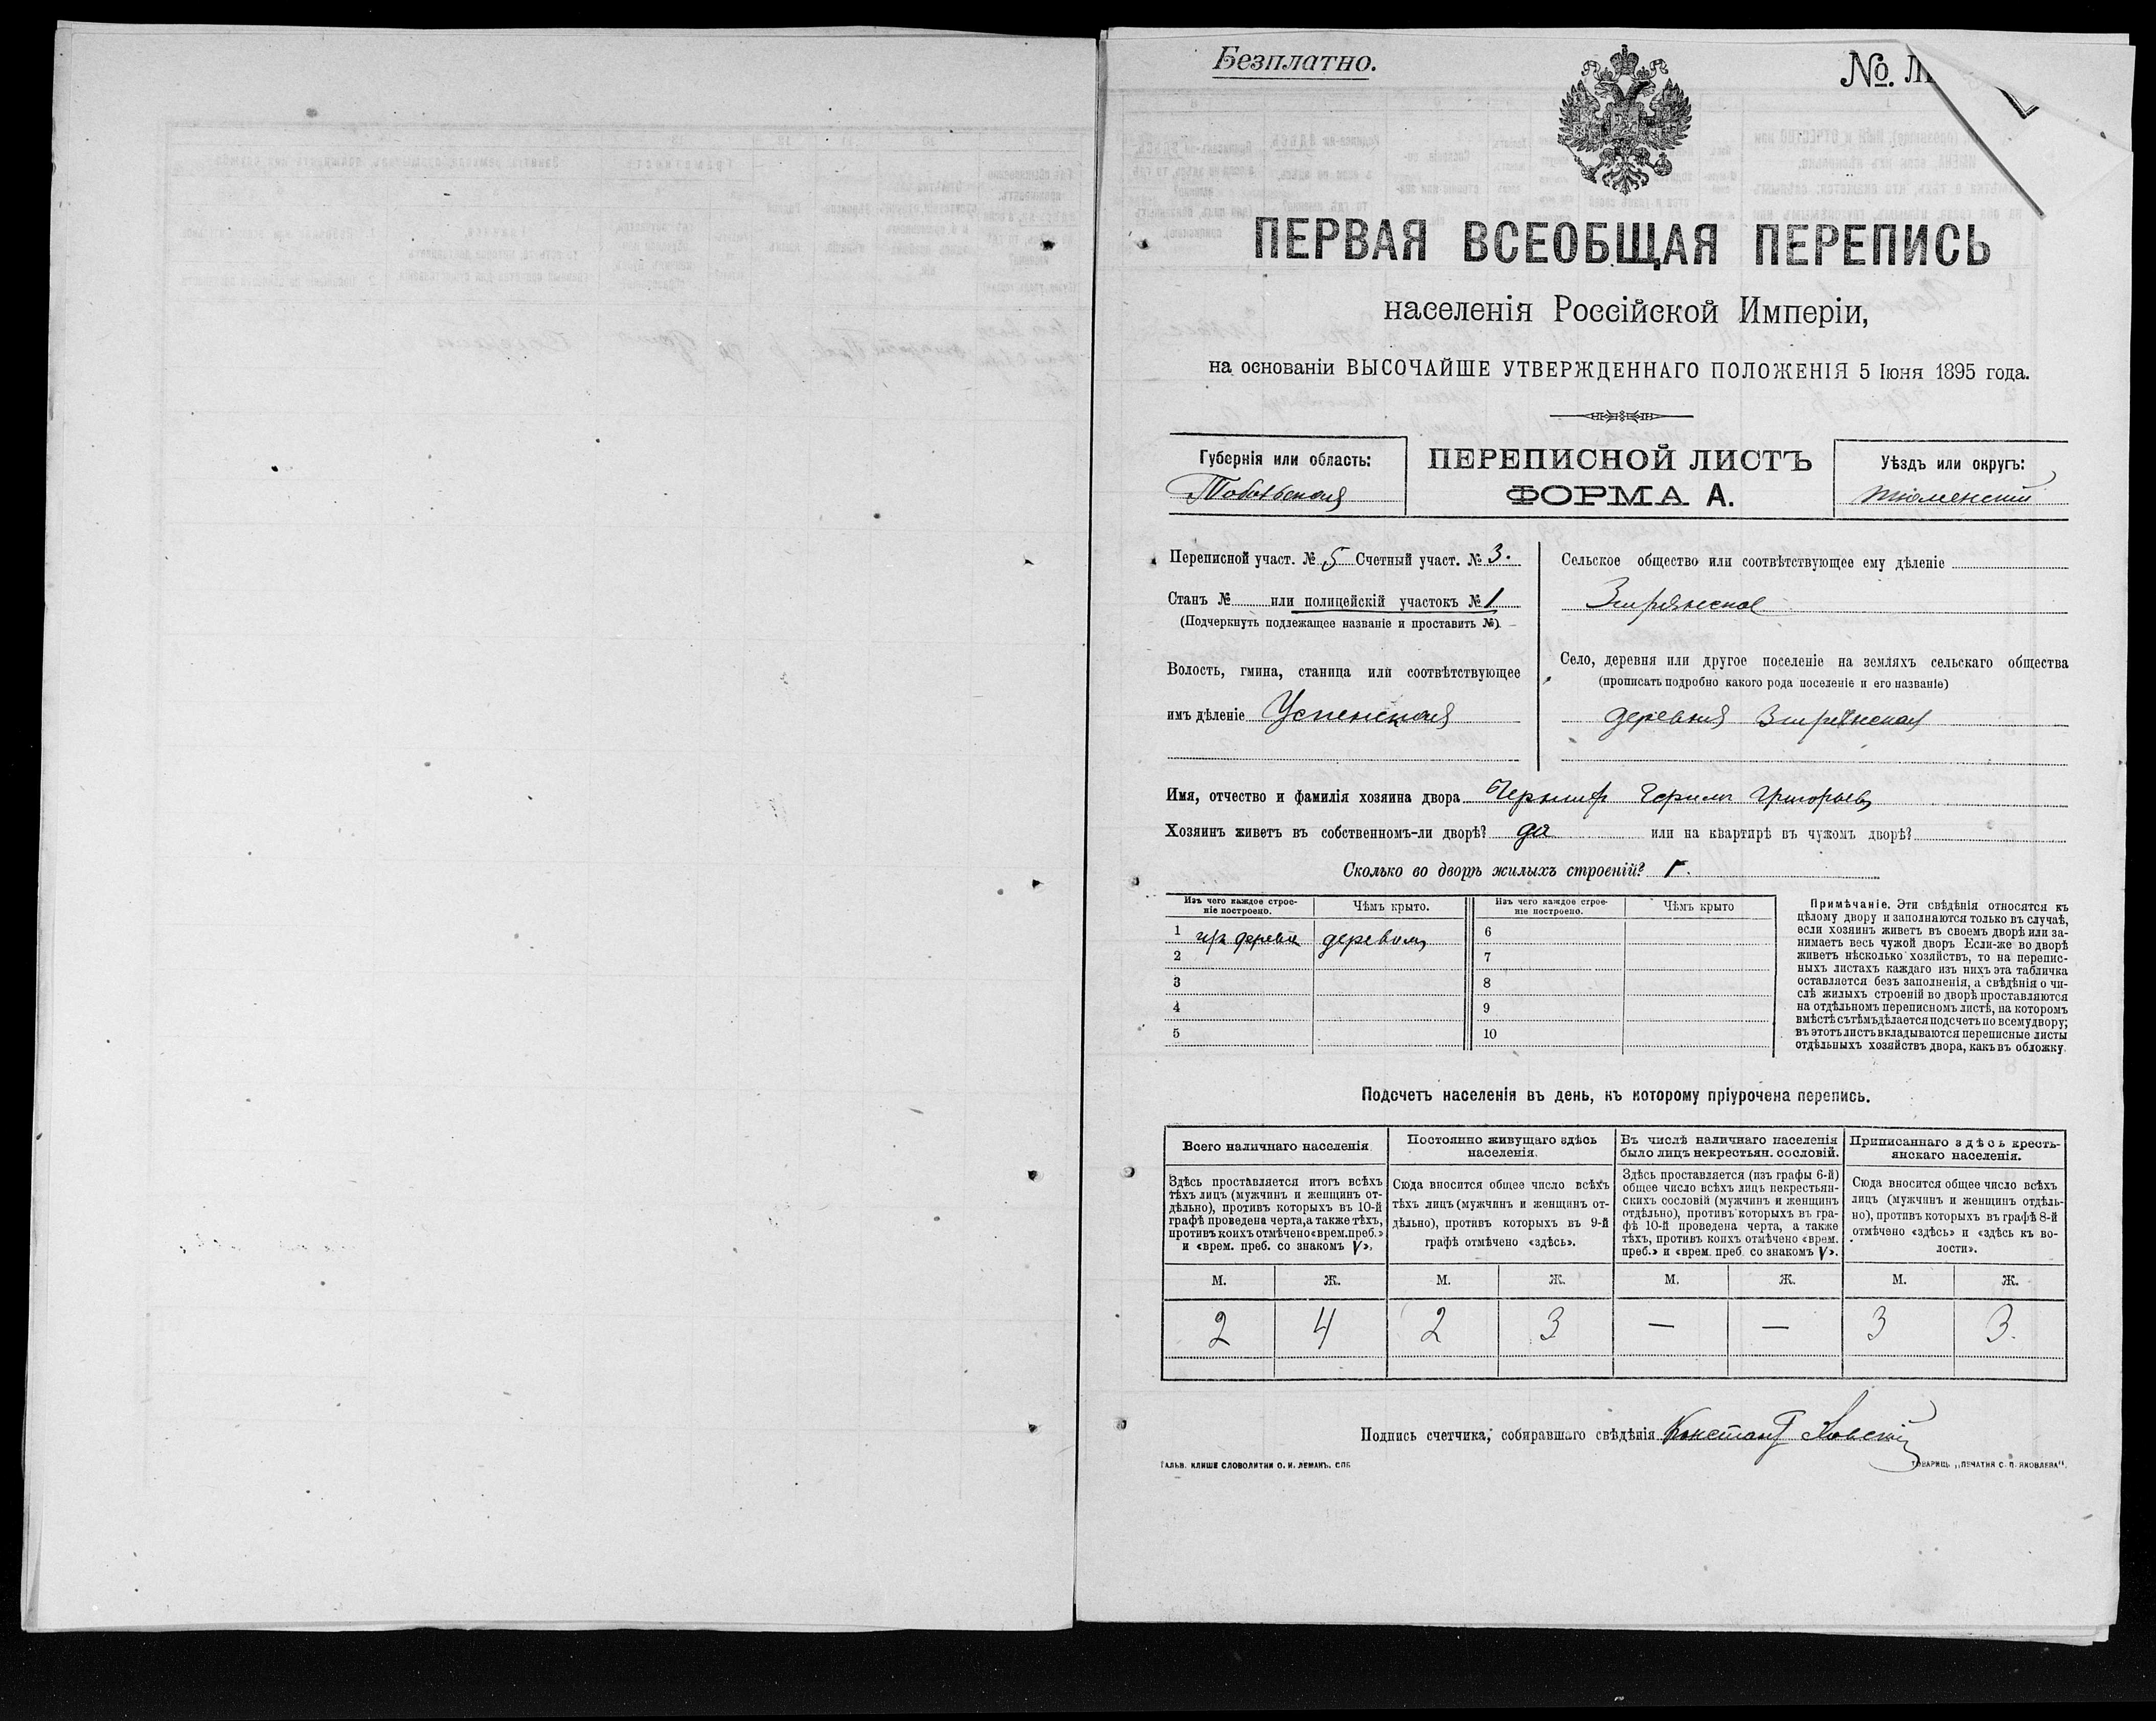 Безплатно.
№ Л
ПЕРВАЯ ВСЕОБЩАЯ ПЕРЕПИСЬ
населенія Россійской Имперіи,
на основаніи ВЫСОЧАЙШЕ УТВЕРЖДЕННАГО ПОЛОЖЕНІЯ 5 Іюня 1895 года.
Губернія или область:
Тобольская
ПЕРЕПИСНОЙ ЛИСТЪ
ФОРМА А.
Уѣздъ или округъ:
Тюменскій
Переписной участ. № 5 Счетный участ. № 3.
Станъ № или полицейскій участокъ № 1
(Подчеркнуть подлежащее названіе и проставить №)
Волость, гмина, станица или соотвѣтствующее
имъ дѣленіе Успенская
Сельское общество или соотвѣтствующее ему дѣленіе
Зырянское
Село, деревня или другое поселеніе на земляхъ сельскаго общества
(прописать подробно какого рода поселеніе и его названіе)
деревня Зырянская
Имя, отчество и фамилія хозяина двора Григорьевъ
Хозяинъ живетъ въ собственномъ-ли дворѣ? да или на квартирѣ въ чужомъ дворѣ?
Сколько во дворѣ жилыхъ строеній? 1.
Изъ чего каждое строе-
ніе построено.
Чѣмъ крыто.
Изъ чего каждое строе-
ніе построено.
Чѣмъ крыто
1 изъ дерева деревомъ 6
2 7
3 8
4 9
5 10
Примѣчаніе. Эти свѣдѣнія относятся къ
цѣлому двору и заполняются только въ случаѣ,
если хозяинъ живетъ въ своемъ дворѣ или за-
нимаетъ весь чужой дворъ Если-же во дворѣ
живетъ нѣсколько хозяйствъ, то на перепис-
ныхъ листахъ каждаго изъ нихъ эта табличка
оставляется безъ заполненія, а свѣдѣнія о чи-
слѣ жилыхъ строеній во дворѣ проставляются
на отдѣльномъ переписномъ листѣ, на которомъ
вмѣстѣ съ тѣмъ дѣлается подсчетъ по всему двору;
въ этотъ листъ вкладываются переписные листы
отдѣльныхъ хозяйствъ двора, какъ въ обложку.
Подсчетъ населенія въ день, къ которому пріурочена перепись.
Всего наличнаго населенія
Здѣсь проставляется итогъ всѣхъ
тѣхъ лицъ (мужчинъ и женщинъ от-
дѣльно), противъ которыхъ въ 10-й
графѣ проведена черта, а также тѣхъ,
противъ коихъ отмѣчено «врем. преб.»
и «врем. преб. со знакомъ V».
Постоянно живущаго здѣсь
населенія.
Сюда вносится общее число всѣхъ
тѣхъ лицъ (мужчинъ и женщинъ от-
дѣльно), противъ которыхъ въ 9-й
графѣ отмѣчено «здѣсь».
Въ числѣ наличнаго населенія
было лицъ некрестьян. сословій.
Здѣсь проставляется (изъ графы 6-й)
общее число всѣхъ лицъ некрестьян-
скихъ сословій (мужчинъ и женщинъ
отдѣльно), противъ которыхъ въ гра-
фѣ 10-й проведена черта, а также
тѣхъ, противъ коихъ отмѣчено «врем.
преб.» и «врем. преб. со знакомъ V».
Приписаннаго здѣсь кресть-
янскаго населенія.
Сюда вносится общее число всѣхъ
лицъ (мужчинъ и женщинъ отдѣль-
но), противъ которыхъ въ графѣ 8-й
отмѣчено «здѣсь» и «здѣсь къ во-
лости».
М. Ж. М. Ж. М. Ж. М. Ж.
2 4 2 3 — — 3 3.
Подпись счетчика, собиравшаго свѣдѣнія
ГАЛЬВ. КЛИШЕ СЛОВОЛИТНИ О. И. ЛЕМАНЪ. СПБ
ТОВАРИЩ. „ПЕЧАТНЯ С. П. ЯКОВЛЕВА“.